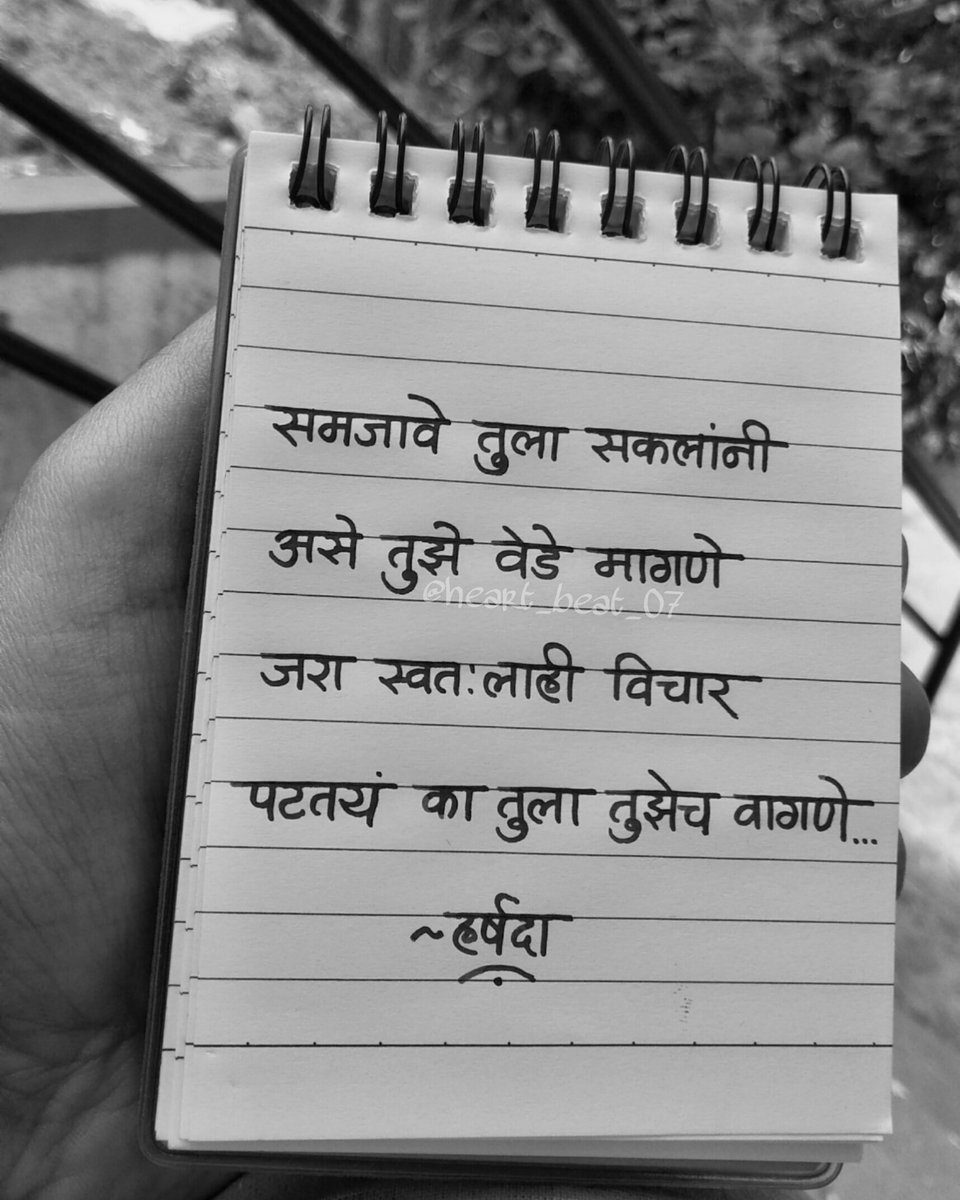 समजावे तुला सकलांनी
असे तुझे वेडे मागणे
@heart_beat_07
जरा स्वत:लाही विचार
पटतयं का तुला तुझेच वागणे...
~हर्षदा